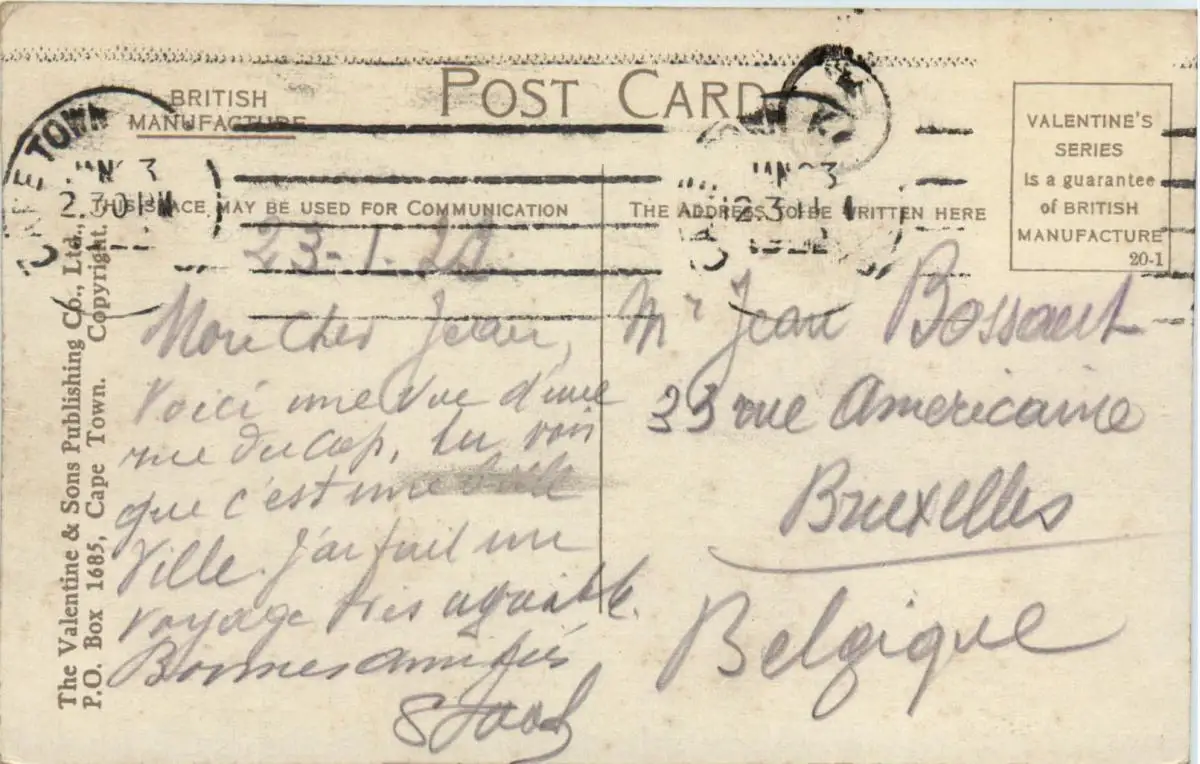 POST CARD
BRITISH
MANUFACTURE
THIS SPACE MAY BE USED FOR COMMUNICATION
THE ADDRESS TO BE WRITTEN HERE
VALENTINE'S
SERIES
is a guarantee
of BRITISH
MANUFACTURE
20-1
TOWN
JAN 23
The Valentine & Sons Publishing Co., Ltd.,
P.O. Box 1685, Cape Town. Copyright.
23-1.
Mon Cher Jean,
Voici une vue d'une
rue du Cap, tu vois
que c'est une belle
Ville. J'ai fait un
voyage très agréable.
Bonnes amitiés
Mr Jean Bossaert
33 rue Americaine
Bruxelles
Belgique